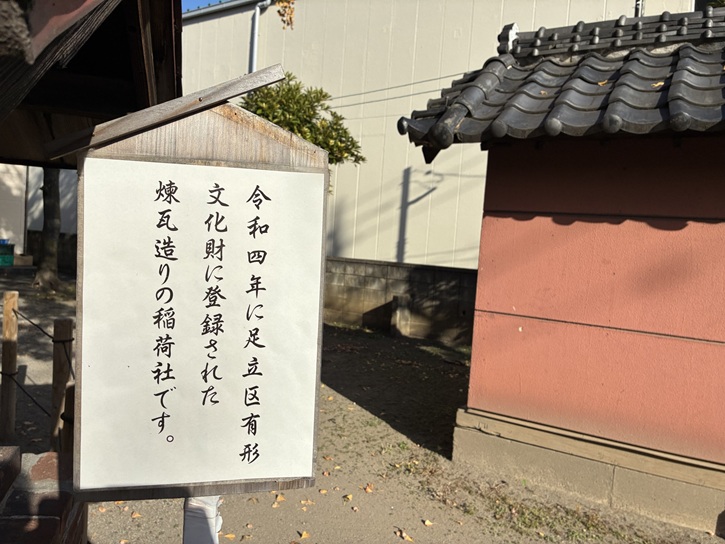 令和四年に足立区有形
文化財に登録された
煉瓦造りの稲荷社です。